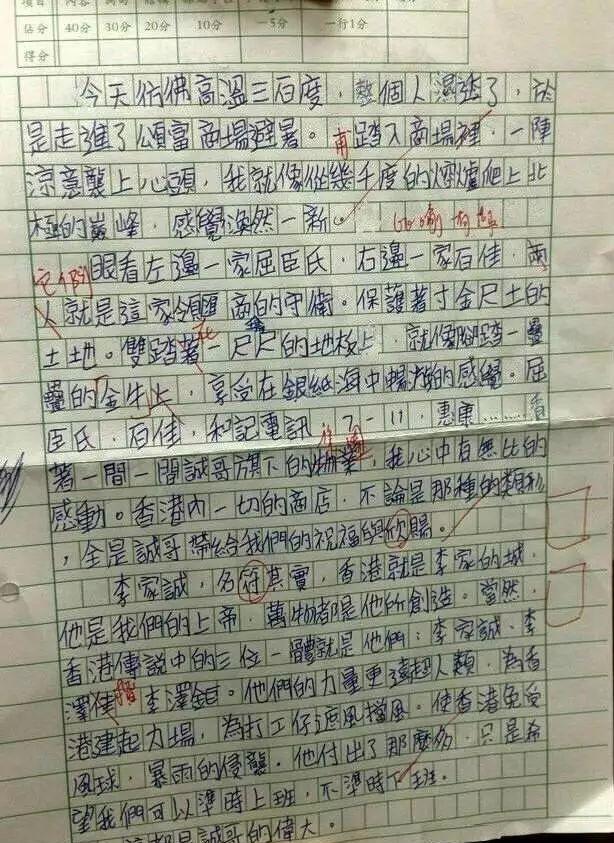 佔分 40分 30分 20分 10分 -5分 一行1分
得分
今天彷彿高溫三百度，整個人濕透了，於
是走進了頌富商場避暑。甫踏入商場裡，一陣
涼意襲上心頭，我就像從幾千度的熔爐爬上北
極的巔峰，感覺渙然一新。
眼看左邊一家屈臣氏，右邊一家百佳，兩
它們
人就是這家領匯商的守衛。保護著寸金尺土的
土地。雙踏著一尺尺的地板上，就像腳踏一疊
疊的「金牛」，享受在銀紙海中暢游的感覺。屈
臣氏，百佳，和記電訊，7-11，惠康……看
著一間一間誠哥旗下的物業，我心中有無比的
感動。香港內一切的商店，不論是那種的類形
，全是誠哥帶給我們的祝福與欣賜。
李家誠，名符其實，香港就是李家的城，
他是我們的上帝，萬物都是他所創造。當然，
香港傳說中的三位一體就是他們：李家誠、李
澤楷 李澤鉅。他們的力量更遠超人類，為香
港建起力場，為打工仔遮風擋風。使香港免受
風球，暴雨的侵襲。他付出了那麼多，只是希
望我們可以準時上班，不準時下班。
這都是誠哥的偉大。